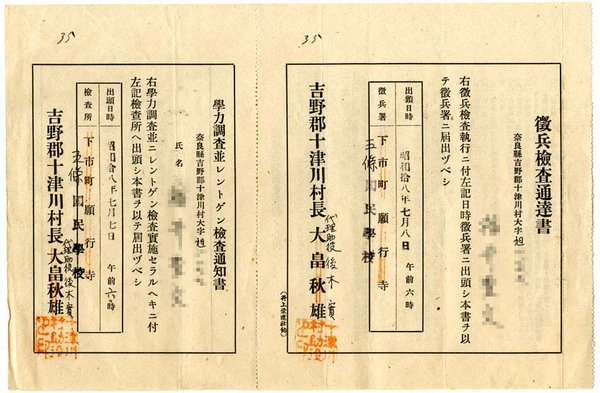 35
徴兵檢査通達書
奈良縣吉野郡十津川村大字旭
右徴兵檢査執行ニ付左記日時徴兵署ニ出頭シ本書ヲ以
テ徴兵署ニ届出ヅベシ
出頭日時 昭和拾八年七月八日 午前六時
徴兵署 下市町願行寺
五條國民學校
吉野郡十津川村長 大畠秋雄
代理助役 後木實
35
學力調査並レントゲン檢査通知書
奈良縣吉野郡十津川村大字旭
氏名
右學力調査並ニレントゲン檢査實施セラルヘキニ付
左記檢査所ヘ出頭シ本書ヲ以テ届出ヅベシ
出頭日時 昭和拾八年七月七日 午前六時
檢査所 下市町願行寺
五條國民學校
吉野郡十津川村長 大畠秋雄
代理助役 後木實